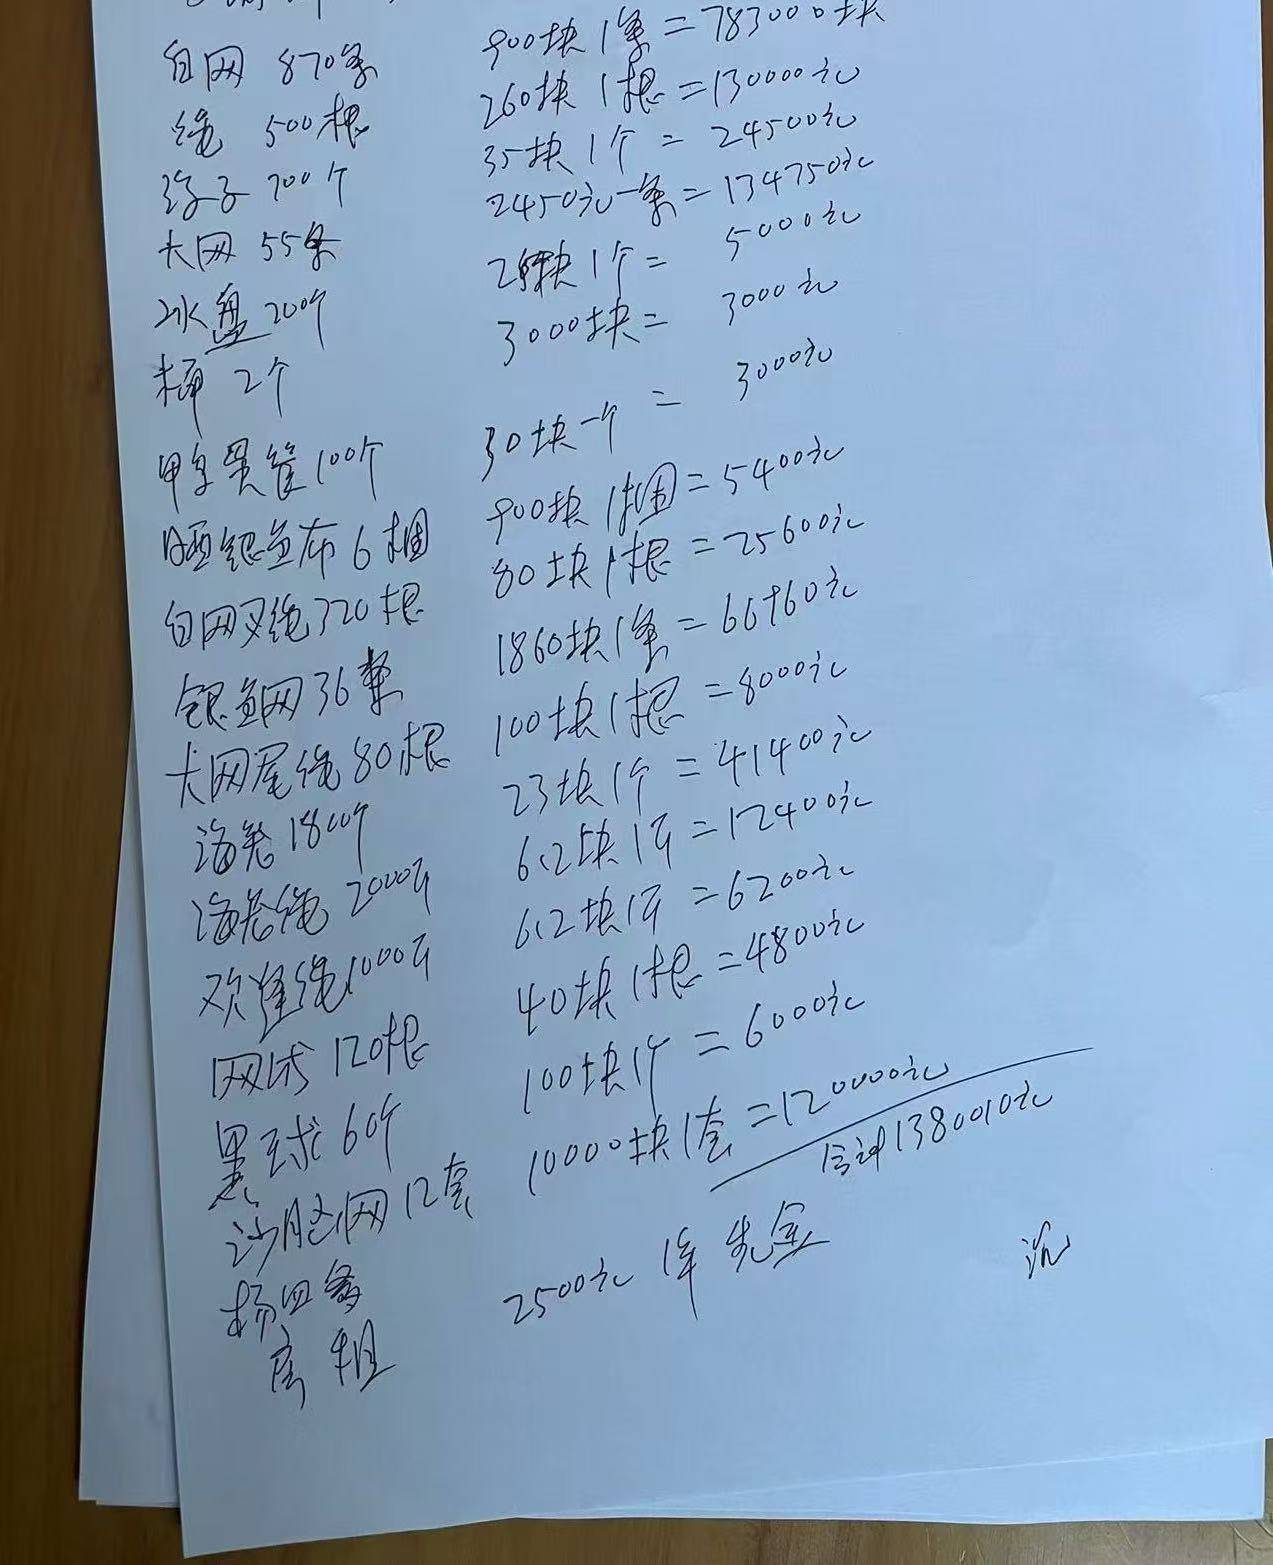 白网 870条 900块1条=783000块
绳 500根 260块1根=130000元
浮子 700个 35块1个=24500元
大网 55条 2450元一条=134750元
冰盘 200个 25块1个=5000元
桶 2个 3000块=3000元
100个 30块一个=3000元
晒银鱼布6捆 900块1捆=5400元
白网叉绳320根 80块1根=25600元
银鱼网36条 1860块1条=66960元
大网尾绳80根 100块1根=8000元
海 1800个 23块1个=41400元
海 绳 2000斤 6.2块1斤=12400元
绳1000斤 6.2块1斤=6200元
网 120根 40块1根=4800元
黑球60个 100块1个=6000元
网12套 10000块1套=120000元
合计1380010元
杨四 2500元 1年 先金
房租